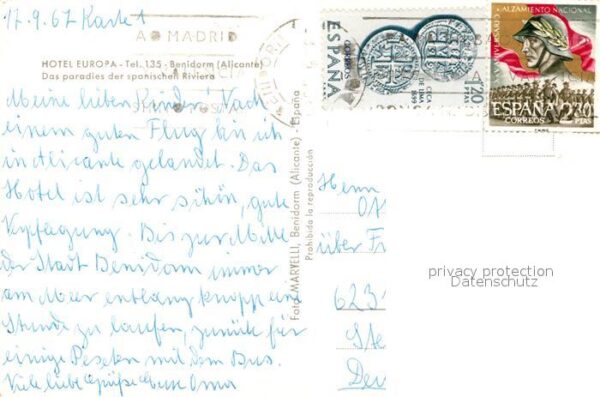 17.9.67 Karte 1
A MADRID
HOTEL EUROPA - Tel. 135 - Benidorm (Alicante)
Das paradies der spanischen Riviera
Meine lieben Kinder! Nach
einem guten Flug bin ich
in Alicante gelandet. Das
Hotel ist sehr schön, gute
Verpflegung. Bis zur Mitte
der Stadt Benidorm immer
am Meer entlang knapp eine
Stunde zu laufen, zurück für
einige Peseten mit dem Bus.
Viele liebe Grüße Oma
Foto MARVELLI, Benidorm (Alicante) - España
Prohibida la reproducción
ESPAÑA
CORREOS
4'20
ALZAMIENTO NACIONAL
ESPAÑA 2'30
CORREOS PTAS
Herrn
über Fr
623
Ste
Deu
privacy protection
Datenschutz